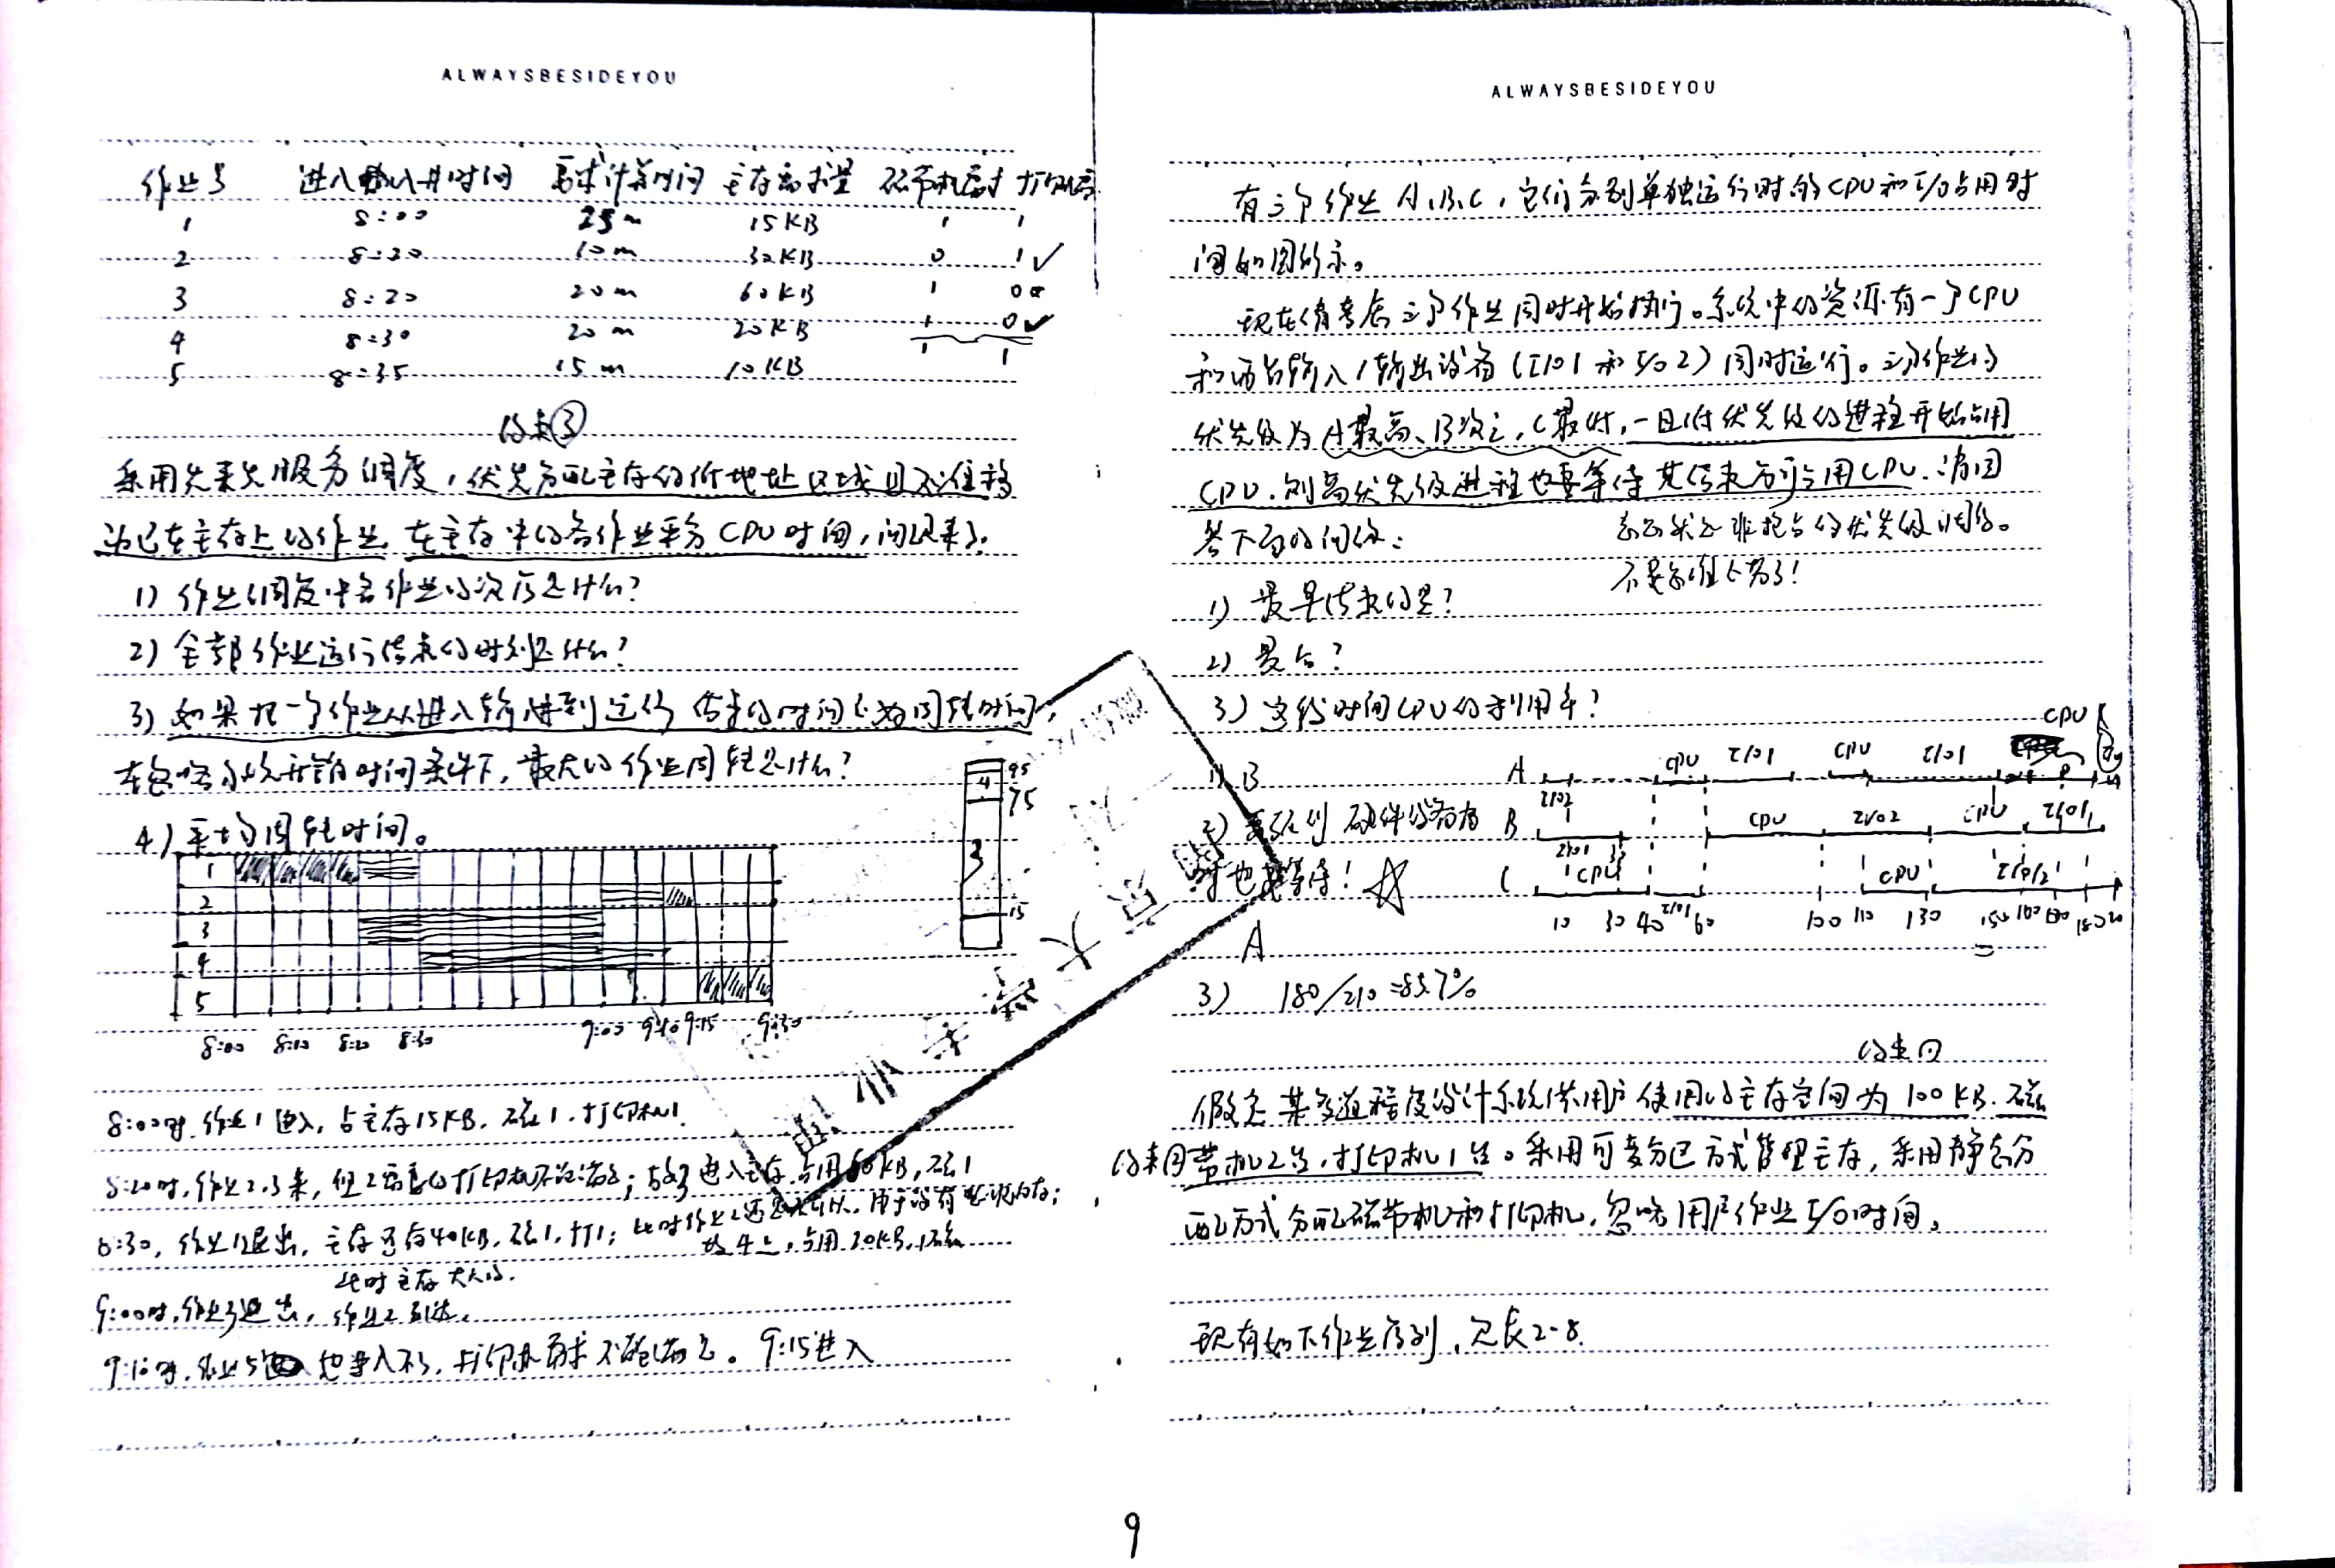 ALWAYSBESIDEYOU
作业号 进入输入井时间 要求计算时间 主存需求量 磁带机需求 打印机需求
1 8:00 25m 15KB 1 1
2 8:20 10m 30KB 0 1✓
3 8:20 20m 60KB 1 0
4 8:30 20m 20KB 1 0✓
5 8:35 15m 10KB 1 1
约束③
采用先来先服务调度,优先分配主存的低地址区域且不准移
动已在主存上的作业,在主存中的各作业平分CPU时间,问题来了.
1) 作业调度中各作业的次序是什么?
2) 全部作业运行结束的时刻是什么?
3) 如果把一个作业从进入输入井到运行结束的时间称为周转时间,
在忽略系统开销时间条件下,最大的作业周转是什么?
4) 平均周转时间。
4 95
75
3
15
1
2
3
4
5
8:00 8:10 8:20 8:30 9:00 9:10 9:15 9:30
8:00时,作业1进入,占主存15KB,磁1,打印机1.
8:20时,作业2,3来,但2需要的打印机不能满足;故3进入主存,占用60KB,磁1
8:30,作业1退出,主存还有40KB,磁1,打1;此时作业2还是不可以,由于没有
故4上,占用20KB,1磁
此时主存
9:00时,作业3退出,作业2到达.
9:10时,作业5也进入不了,打印机需求不能满足。9:15进入
ALWAYSBESIDEYOU
有三个作业A、B、C,它们分别单独运行时的CPU和I/O占用时
间如图所示。
现在请考虑三个作业同时开始执行。系统中的资源有一个CPU
和两台输入/输出设备(I/O1和I/O2)同时运行。三个作业的
优先级为A最高、B次之,C最低,一旦低优先级的进程开始占用
CPU,则高优先级进程也要等待其结束后方可占用CPU.请回
答下面的问题:
表示就是非抢占的优先级调度。
1) 最早结束的是?
2) 最后?
3) 这段时间CPU的利用率?
1) B
2) 硬件设备有
时也要等待!☆
A
3) 180/210=85.7%
A CPU I/O1 CPU I/O1 CPU
B I/O2 CPU I/O2 CPU I/O1
C I/O1 CPU I/O1 CPU I/O2
10 30 40 60 100 110 130 150 160 180
约束①
假定某多道程序设计系统供用户使用的主存空间为100KB,磁
约束② 带机2台,打印机1台。采用可变分区方式管理主存,采用静态分
配方式分配磁带机和打印机,忽略用户作业I/O时间。
现有如下作业序列,见表2-8.
9